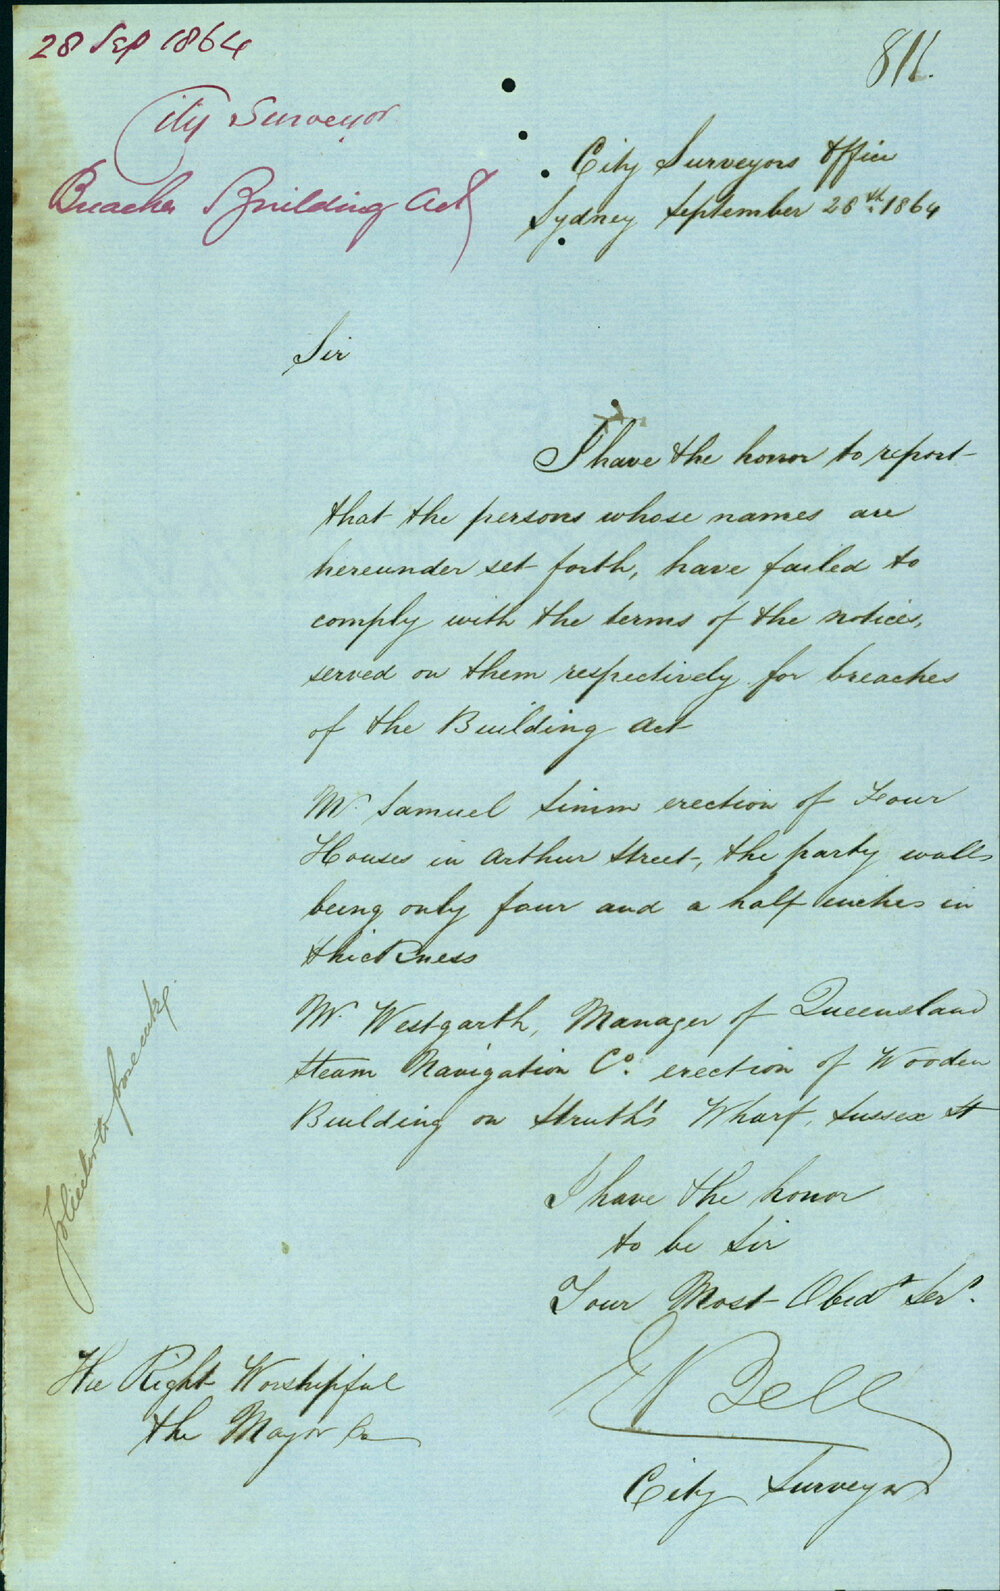 28 Sep 1864
811.
City Surveyor
Breaches Building Act
City Surveyors Office
Sydney September 28th. 1864
Sir
I have the honor to report
that the persons whose names are
hereunder set forth, have failed to
comply with the terms of the notices,
served on them respectively for breaches
of the Building Act
Mr. Samuel Simm erection of Four
Houses in Arthur Street, the party walls
being only four and a half inches in
thickness
Mr. Westgarth, Manager of Queensland
Steam Navigation Co. erection of Wooden
Building on Struth's Wharf, Sussex St
Solicitor to prosecute
I have the honor
to be Sir
Your Most Obedt Servt.
E Bell
City Surveyor
The Right Worshipful
the Mayor &c